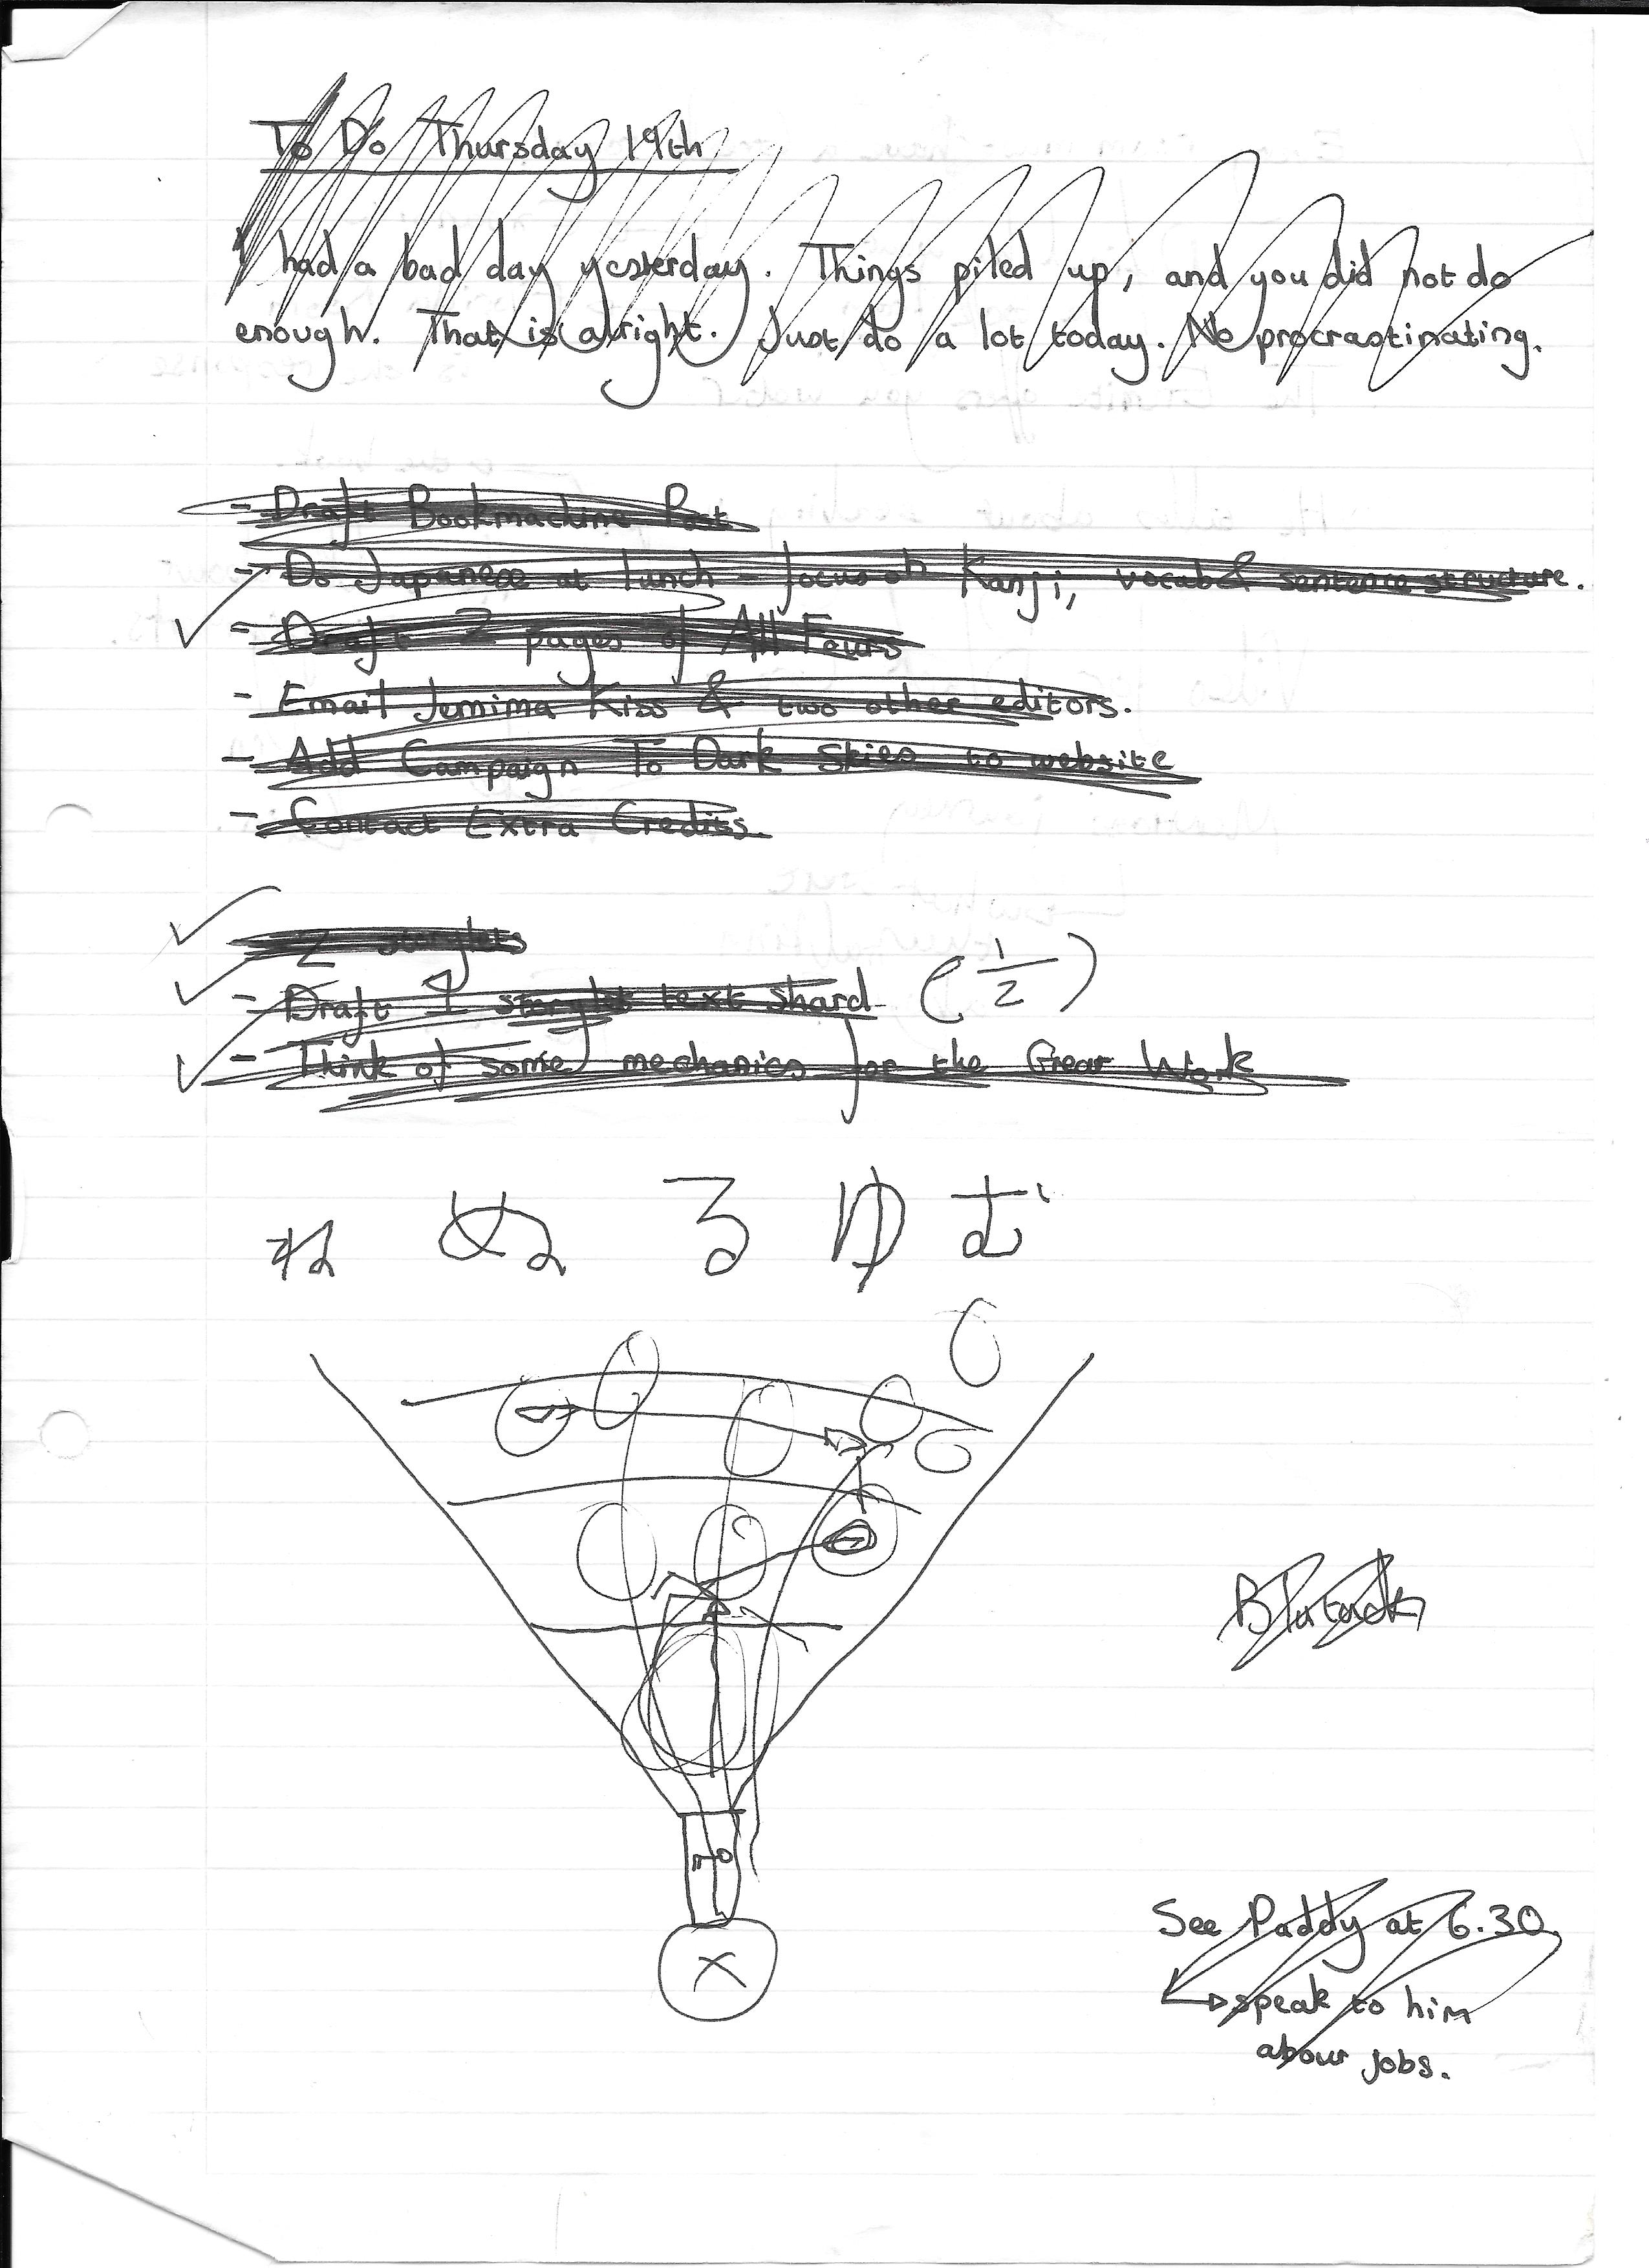 To Do Thursday 19th
I had a bad day yesterday. Things piled up, and you did not do
enough. That is alright. Just do a lot today. No procrastinating.
- Draft Bookmachine Post
- Do Japanese at lunch - focus on Kanji, vocab & sentence structure.
- Draft 2 pages of All Fours
- Email Jemima Kiss & two other editors.
- Add Campaign To Dark Skies to website
- Contact Extra Credits.
2 storylets
- Draft 1 storylet text shard (1/2)
- Think of some mechanics for the Great Work
ね ぬ る ゆ む
X
See Paddy at 6.30
speak to him
about jobs.